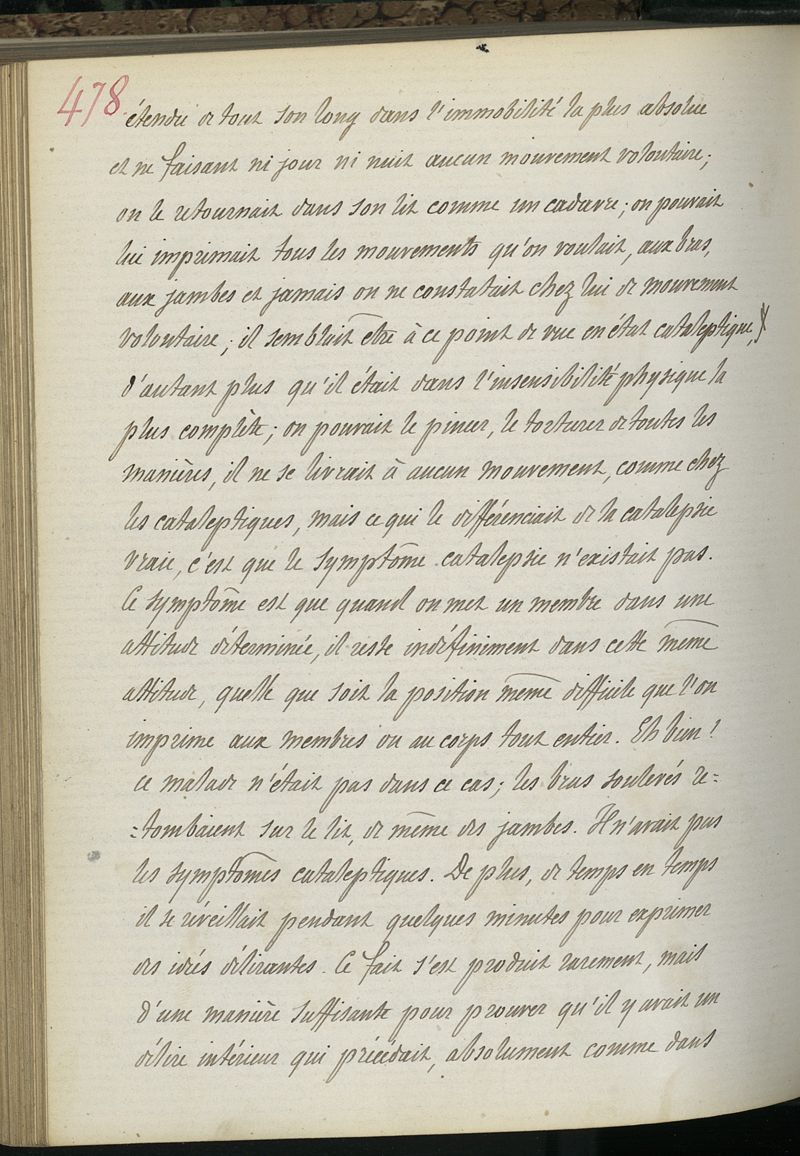 478
étendu de tout son long dans l'immobilité la plus absolue
et ne faisant ni jour ni nuit aucun mouvement volontaire;
on le retournait dans son lit comme un cadavre; on pouvait
lui imprimait tous les mouvements qu'on voulait, aux bras,
aux jambes et jamais on ne constatait chez lui de mouvement
volontaire; il semblait être à ce point de vue en état cataleptique,
d'autant plus qu'il était dans l'insensibilité physique la
plus complète; on pouvait le pincer, le torturer de toutes les
manières, il ne se livrait à aucun mouvement, comme chez
les cataleptiques, mais ce qui le différenciait de la catalepsie
vraie, c'est que le symptôme catalepsie n'existait pas.
Ce symptôme est que quand on met un membre dans une
attitude déterminée, il reste indéfiniment dans cette même
attitude, quelle que soit la position même difficile que l'on
imprime aux membres ou au corps tout entier. Eh bien!
ce malade n'était pas dans ce cas; les bras soulevés re=
=tombaient sur le lit, de même des jambes. Il n'avait pas
les symptômes cataleptiques. De plus, de temps en temps
il se réveillait pendant quelques minutes pour exprimer
des idées délirantes. Ce fait s'est produit rarement, mais
d'une manière suffisante pour prouver qu'il y avait un
délire intérieur qui précédait, absolument comme dans